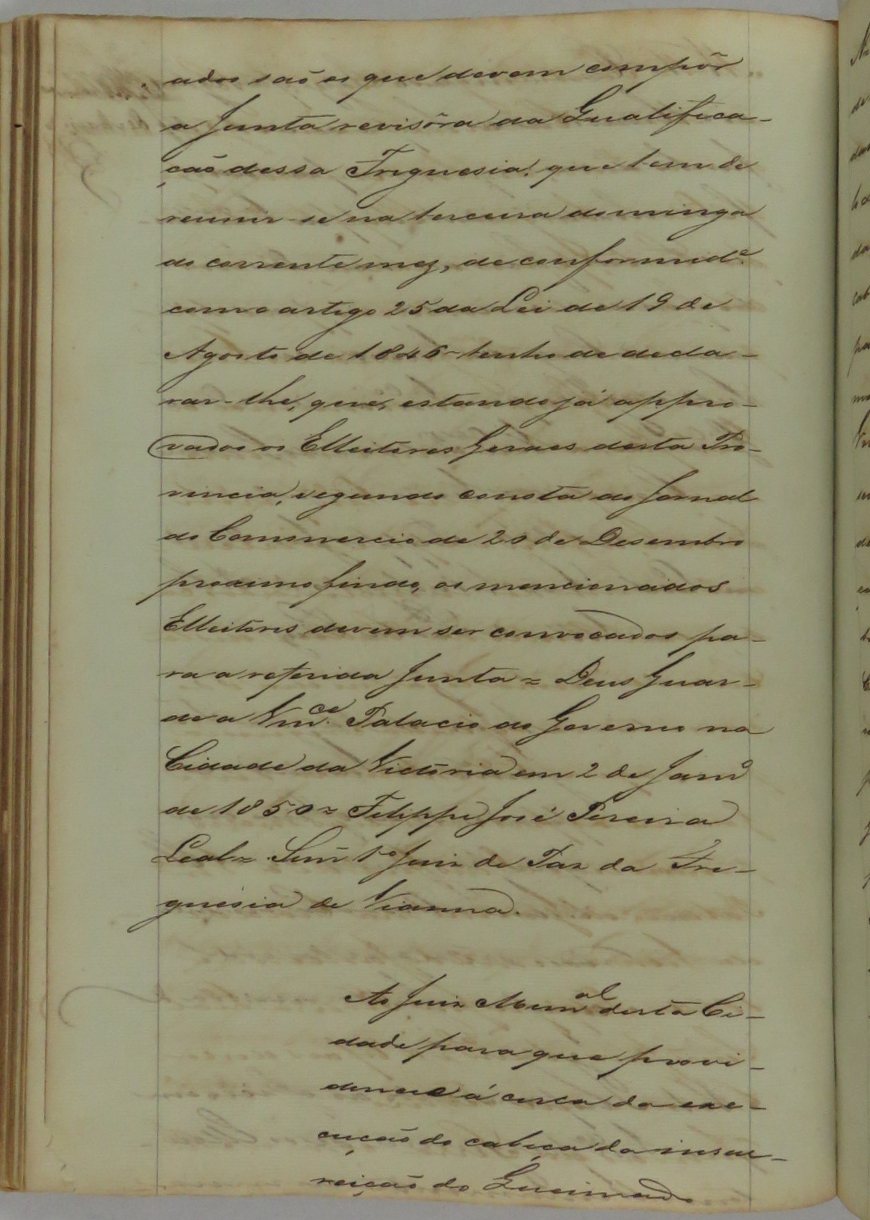 ados são os que devem compôr
a Junta revisôra da Qualifica-
ção dessa Freguesia, que tem de
reunir-se na terceira dominga
do corrente mez, de conformid.e
com o artigo 25 da Lei de 19 de
Agosto de 1846 - tenho de decla-
rar-lhe, que, estando já appro-
vados os Elleitores Geraes desta Pro-
vincia, segundo consta do Jornal
do Commercio de 20 de Desembro
proximo findo, os mencionados
Elleitores devem ser convocados pa-
ra a referida Junta = Deus Guar-
de a Vm.ce Palacio do Governo na
Cidade da Victoria em 2 de Janr.o
de 1850 = Felippe José Pereira
Leal = Senr. 1.o Juiz de Paz da Fre-
guesia de Vianna.
Ao Juiz Mun.al desta Ci-
dade para que provi-
dencie á cerca da exe-
cução do cabeça da insur-
reição do Queimado